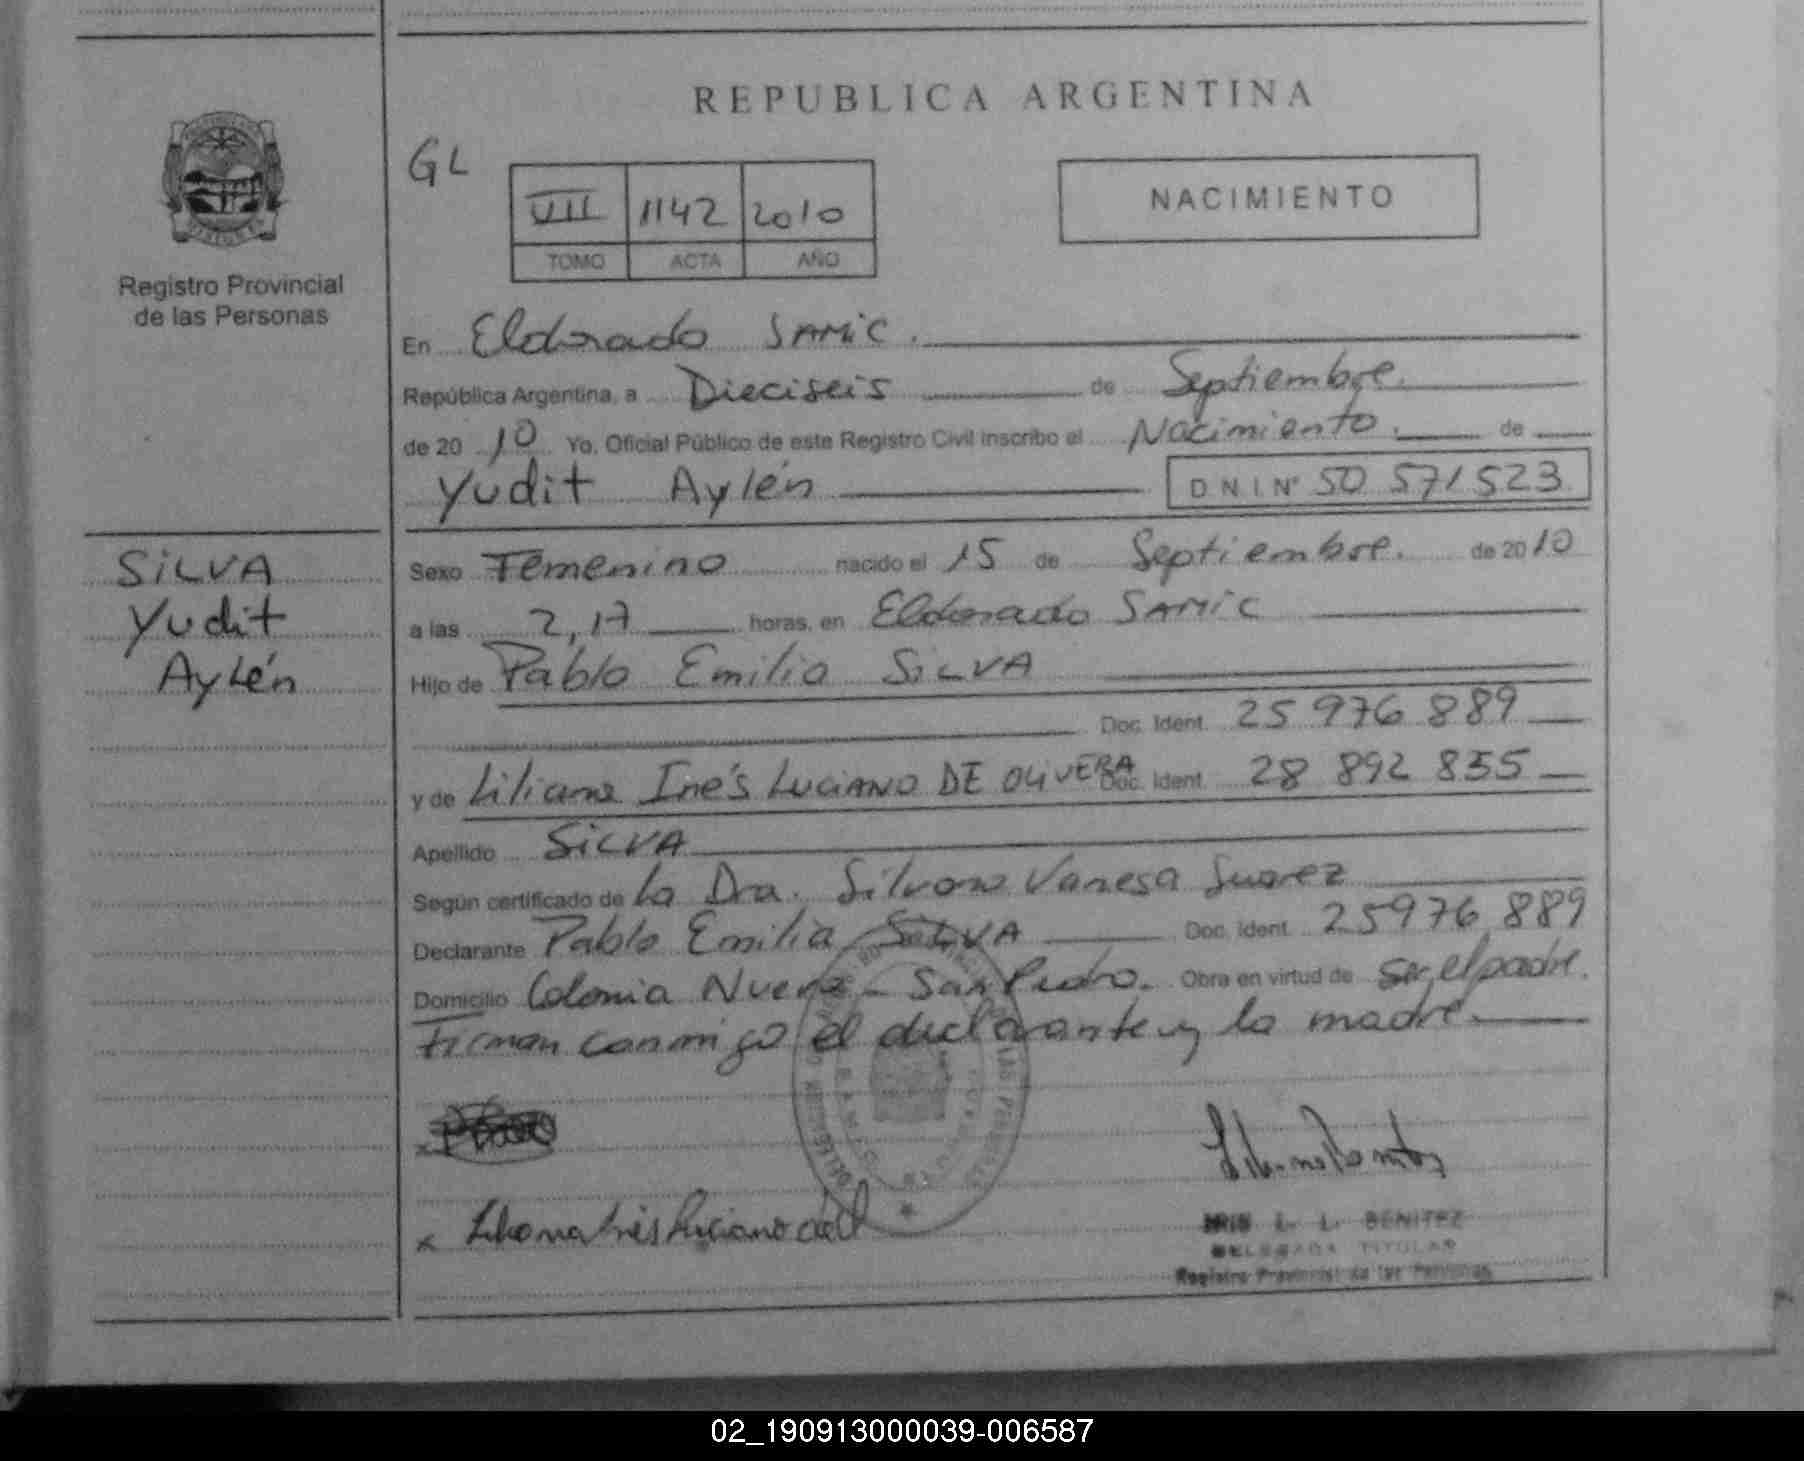 REPUBLICA ARGENTINA
GL
VII 1142 2010
TOMO ACTA AÑO
NACIMIENTO
Registro Provincial
de las Personas
En Eldorado SAMiC.
República Argentina, a Dieciseis de Septiembre.
de 20 10 Yo, Oficial Público de este Registro Civil inscribo el Nacimiento. de
Yudit Aylén D.N.I. N° 50 571 523
SiLVA
Yudit
Aylén
Sexo Femenino nacido el 15 de Septiembre. de 20 10
a las 2,17 horas, en Eldorado SAMiC
Hijo de Pablo Emilio SiLVA
Doc. Ident. 25 976 889
y de Liliana Inés LUCIANO DE OLIVERA Doc. Ident. 28 892 855
Apellido SiLVA
Según certificado de la Dra. Silvana Vanesa Suarez
Declarante Pablo Emilio SiLVA Doc. Ident. 25976 889
Domicilio Colonia Nueva - San Pedro. Obra en virtud de ser el padre.
Firman conmigo el declarante y la madre.
x
x Liliana Inés Luciano de
IRIS L. L. BENITEZ
DELEGADA TITULAR
Registro Provincial de las Personas
02_190913000039-006587